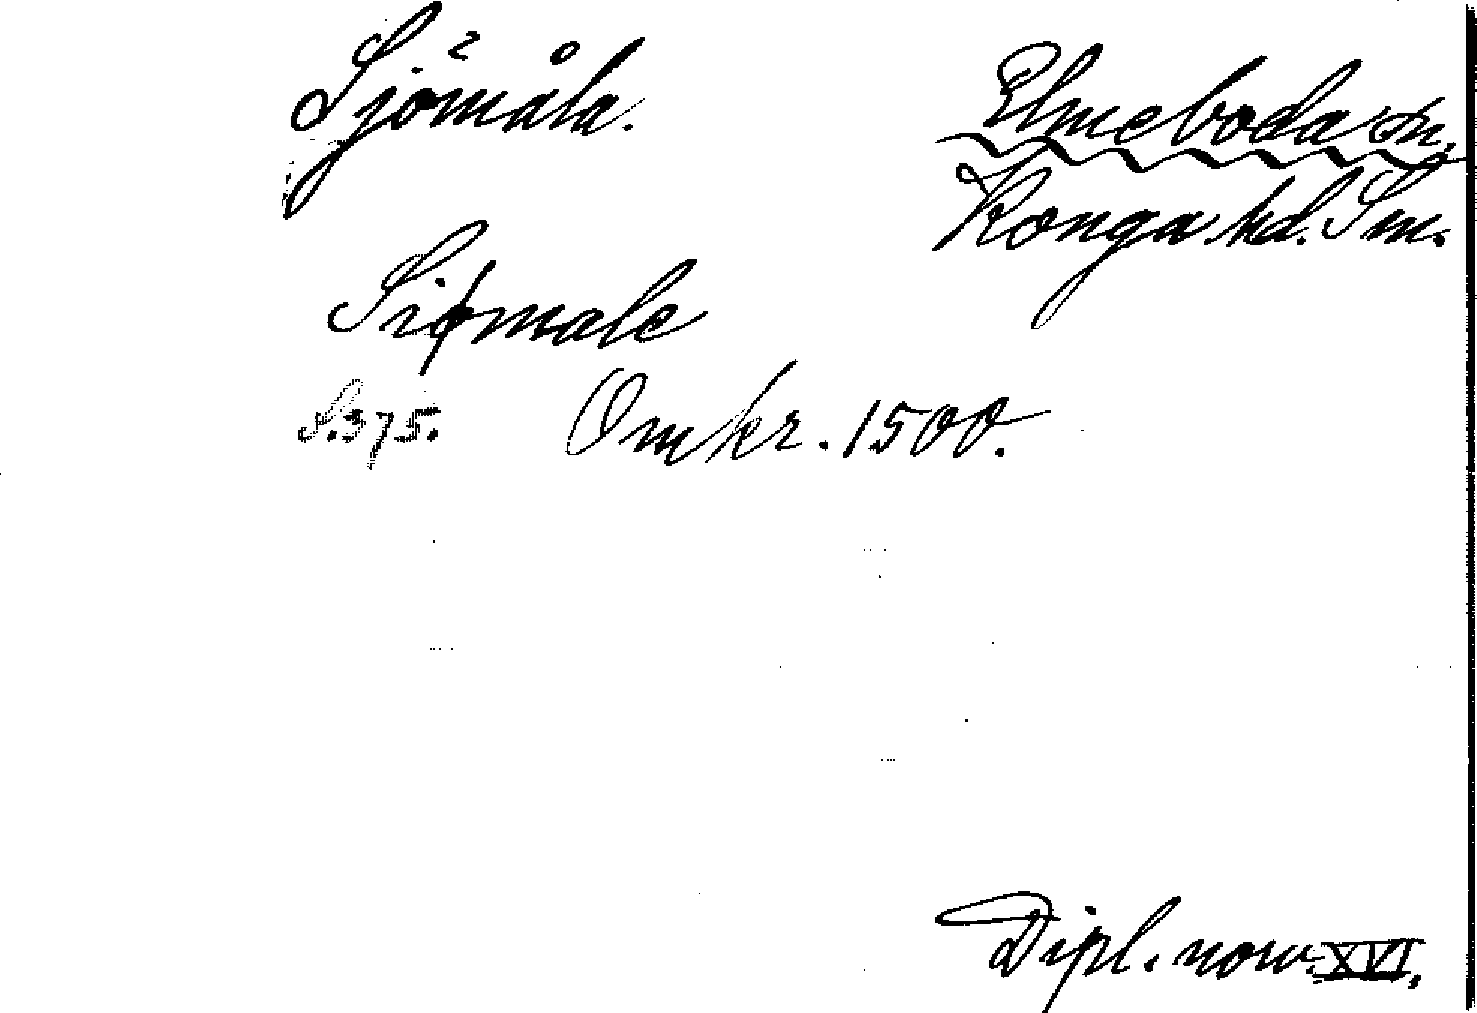 Sjömåla.
Elmeboda sn.
Konga hd. Sm.
Siømale
S. 375. Omkr. 1500.
Dipl. norv. XVI.